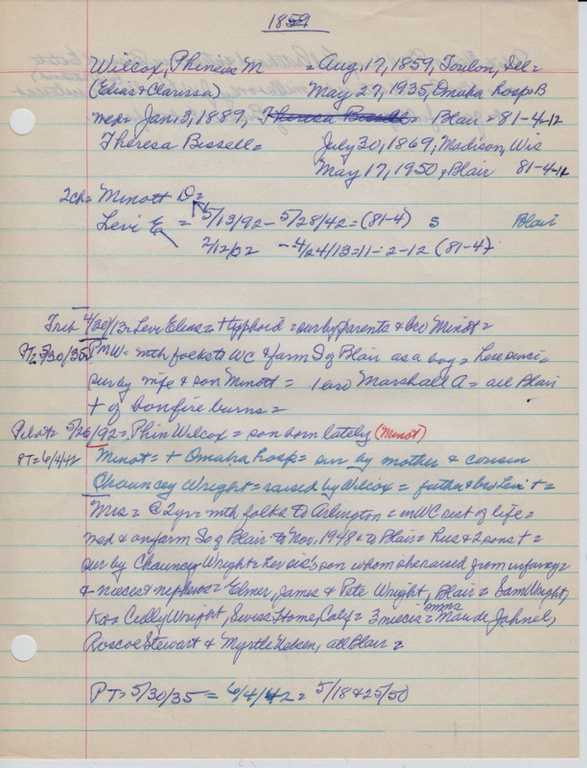 1859
Wilcox, Phineas M = Aug, 17, 1859, Toulon, Ill=
(Elias & Clarissa) May 27, 1935, Omaha hosp B
med= Jan, 3, 1889, Theresa Bissell= Blair = 81-4-12
Theresa Bissell= July 30, 1869, Madison, Wis
May 17, 1950, Blair 81-4-12
2ch= Minott D=
Levi E = 5/13/92 - 5/28/42 = (81-4) S Blair
2/12/02 - 4/24/13=11-2-12 (81-4)
Trib 4/30/13= Levi Elias= + typhoid = sur by parents & bro Minot=
PT= 5/30/35= PMW= mth folks to WC & farm S of Blair as a boy = here since
sur by wife & son Minott = 1 bro Marshall A = all Blair
+ of bonfire burns =
Pilot= 5/26/92= Phin Wilcox = son born lately (Minot)
PT=6/4/42 Minot= + Omaha hosp= sur by mother & cousin
Chauncey Wright= raised by Wilcox = father & bro Levi +=
Mrs = @ 2yr= mth folks to Arlington = in WC rest of life=
med & on farm So of Blair to Nov, 1948 = to Blair= hus & 2 sons + =
sur by Chauncey Wright= her sis's son whom she raised from infancy=
& nieces & nephews= Elmer, James & Pete Wright, Blair = Sam Wright,
Ks= Culley Wright, Swiss Home, Calif = 3 nieces = mmes Maude Jahnel,
Roscoe Stewart & Myrtle Nelsen, all Blair =
PT= 5/30/35 = 6/4/42 = 5/18 & 25/50